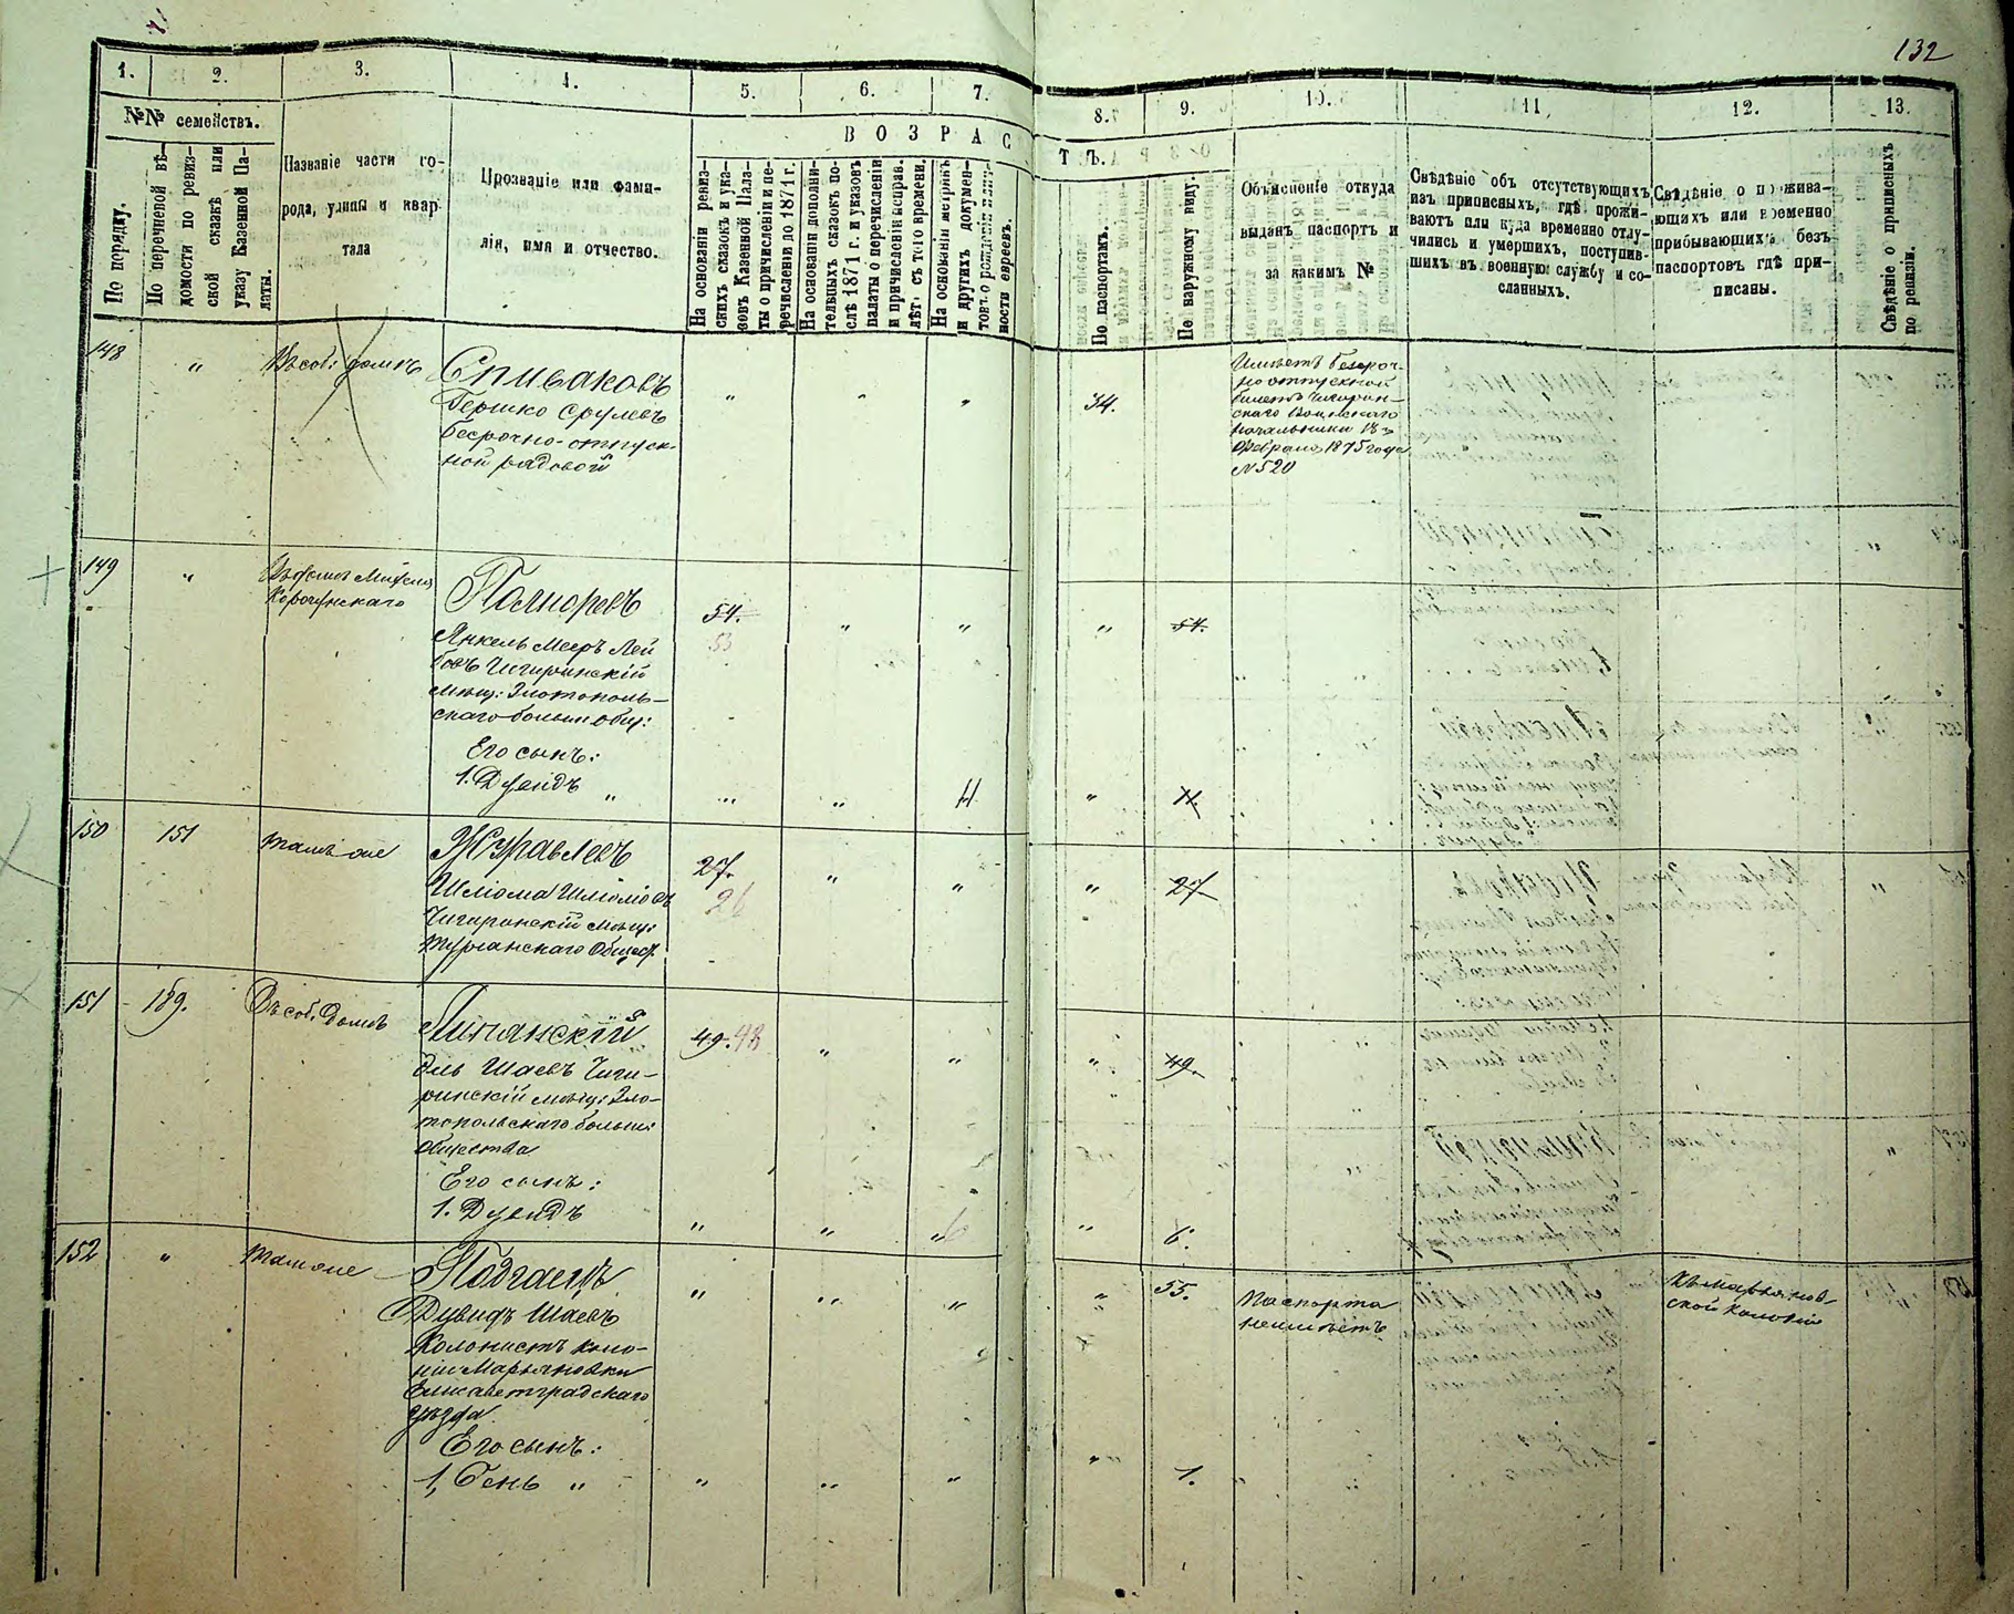 132
1.
2.
3.
4.
5.
6.
7.
8.
9.
10.
11.
12.
13.
№№ семействъ.
По порядку.
По перечневой вѣ-
домости по ревиз-
ской сказкѣ или
указу Казенной Па-
латы.
Названіе части го-
рода, улицы и квар-
тала
Прозваніе или фами-
лія, имя и отчество.
ВОЗРАСТЪ.
На основаніи ревиз-
скихъ сказокъ и ука-
зовъ Казенной Пала-
ты о причисленіи и пе-
речисленіи до 1871 г.
На основаніи дополни-
тельныхъ сказокъ по-
слѣ 1871 г. и указовъ
палаты о перечисленіи
и причисленіи исправ.
лѣтъ съ того времени.
На основаніи метрикъ
и другихъ докумен-
товъ о рожденіи
ности евреевъ.
По паспортамъ.
По наружному виду.
Объясненіе откуда
выданъ паспортъ и
за какимъ №
Свѣдѣніе объ отсутствующихъ
изъ приписныхъ, гдѣ прожи-
ваютъ или куда временно отлу-
чились и умершихъ, поступив-
шихъ въ военную службу и со-
сланныхъ.
Свѣдѣніе о прожива-
ющихъ или временно
прибывающихъ безъ
паспортовъ гдѣ при-
писаны.
Свѣдѣніе о приписныхъ
по ревизіи.
148
"
Въ соб: домѣ
Спиваковъ
Гершко Срулевъ
бесрочно-отпуск-
ной рядовой
"
"
"
34.
Имѣетъ безсроч-
но отпускной
билетъ Чигирин-
скаго Воинскаго
Начальника 18
Февраля 1875 года
№ 520
149
"
Въ домѣ
Поляноревъ
Янкель Мееръ Лей
бовъ Чигиринскій
мѣщ: Златополь-
скаго больш общ:
54.
53
"
"
"
54.
Его сынъ:
1. Дувидъ "
"
"
11
"
11.
150
151
тамъ же
Журавлевъ
Шліома Шліомовъ
Чигиринскій мѣщ:
27.
26
"
"
"
27
151
189.
Въ соб. Домѣ
Липянскій
Эль Шаевъ Чиги-
ринскій мѣщ: Зла-
топольскаго больш:
общества
49. 48
"
"
"
49.
Его сынъ:
1. Дувидъ
"
"
"6
"
6.
152
"
тамже
Подгаецъ
Дувидъ Шаевъ
Колонистъ коло-
ніи Марьяновки
Елисаветградскаго
уѣзда
"
"
"
"
55.
Паспорта
неимѣетъ
Къ Марьянов-
ской Колоніи
Его сынъ:
1, Бень "
"
"
"
"
1.